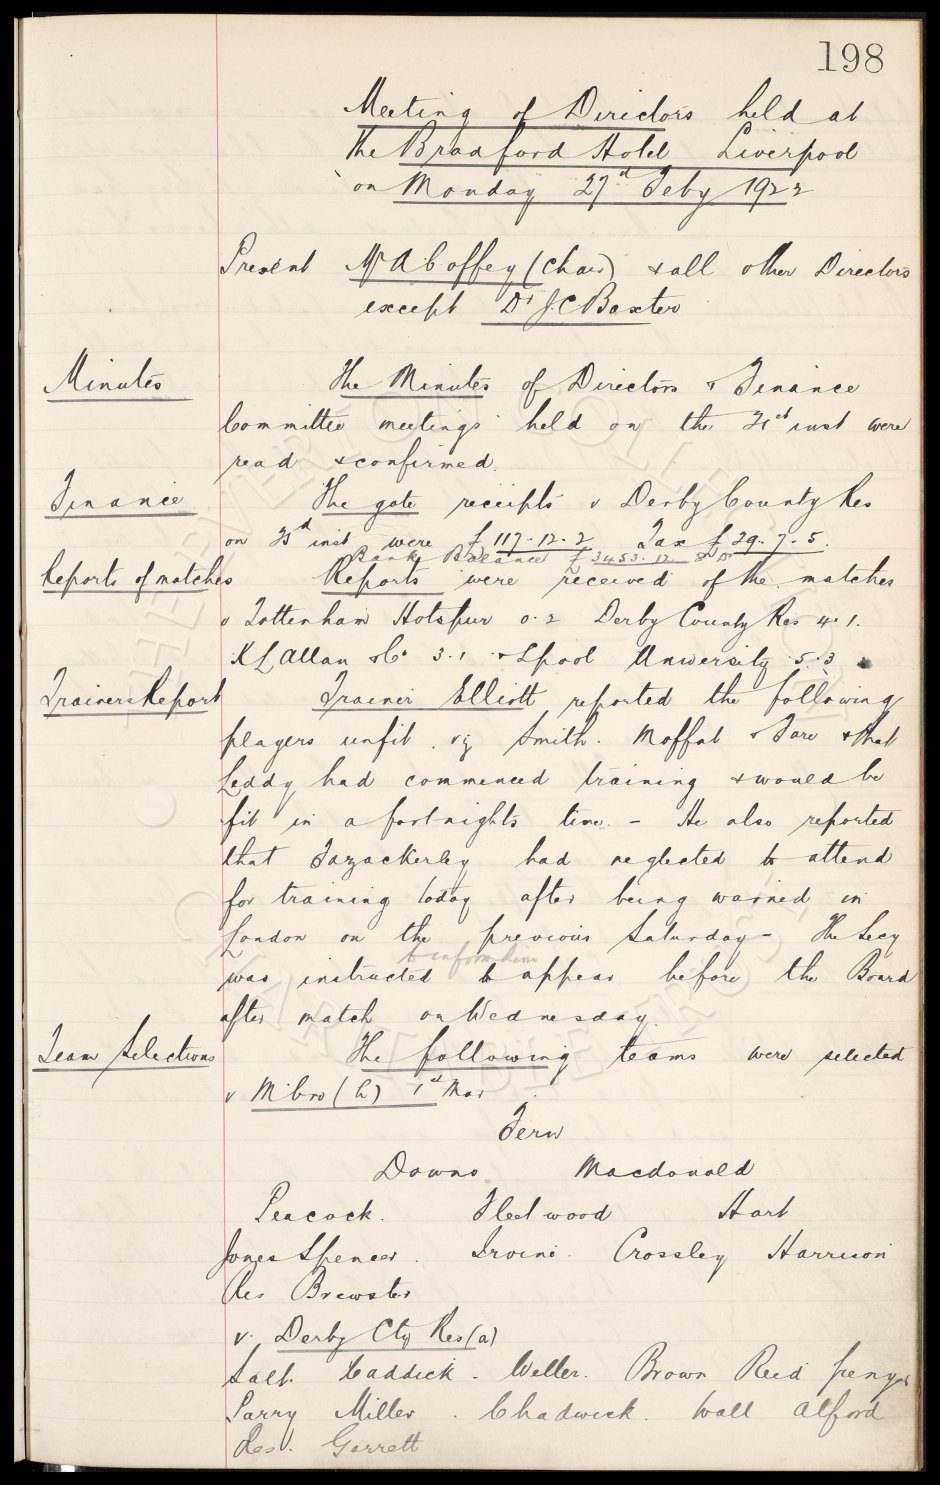 198
Meeting of Directors held at
the Bradford Hotel Liverpool
on Monday 27th Feby 1922
Present Mr A Coffey (Chair) & all other Directors
except Dr J. C. Baxter
Minutes The Minutes of Directors & Finance
Committee meetings held on the 21st inst were
read & confirmed.
Finance The gate receipts v Derby County Res
on inst were £117-12-2 Tax £29-7-5.
Bank Balance £3453-12-
Reports of matches Reports were received of the matches
v Tottenham Hotspur 0.2 Derby County Res 4.1.
& Co 3.1 & Lpool University 5.3
Trainers Report Trainer Elliott reported the following
players unfit. viz Smith. Moffat & Fare & that
Leddy had commenced training & would be
fit in a fortnights time. - He also reported
that Fazackerley had neglected to attend
for training today after being warned in
London on the previous Saturday - The Secy
to inform him
was instructed to appear before the Board
after match on Wednesday.
Team Selections The following teams were selected
v Mbro (h) 1st Mar
Fern
Downs Macdonald
Peacock. Fleetwood Hart
Jones Spencer. Irvine. Crossley Harrison
Res Brewster
v. Derby Cty Res (a)
Salt. Caddick. Weller. Brown Reid
Parry Miller. Chadwick. Wall Alford
Res. Garrett